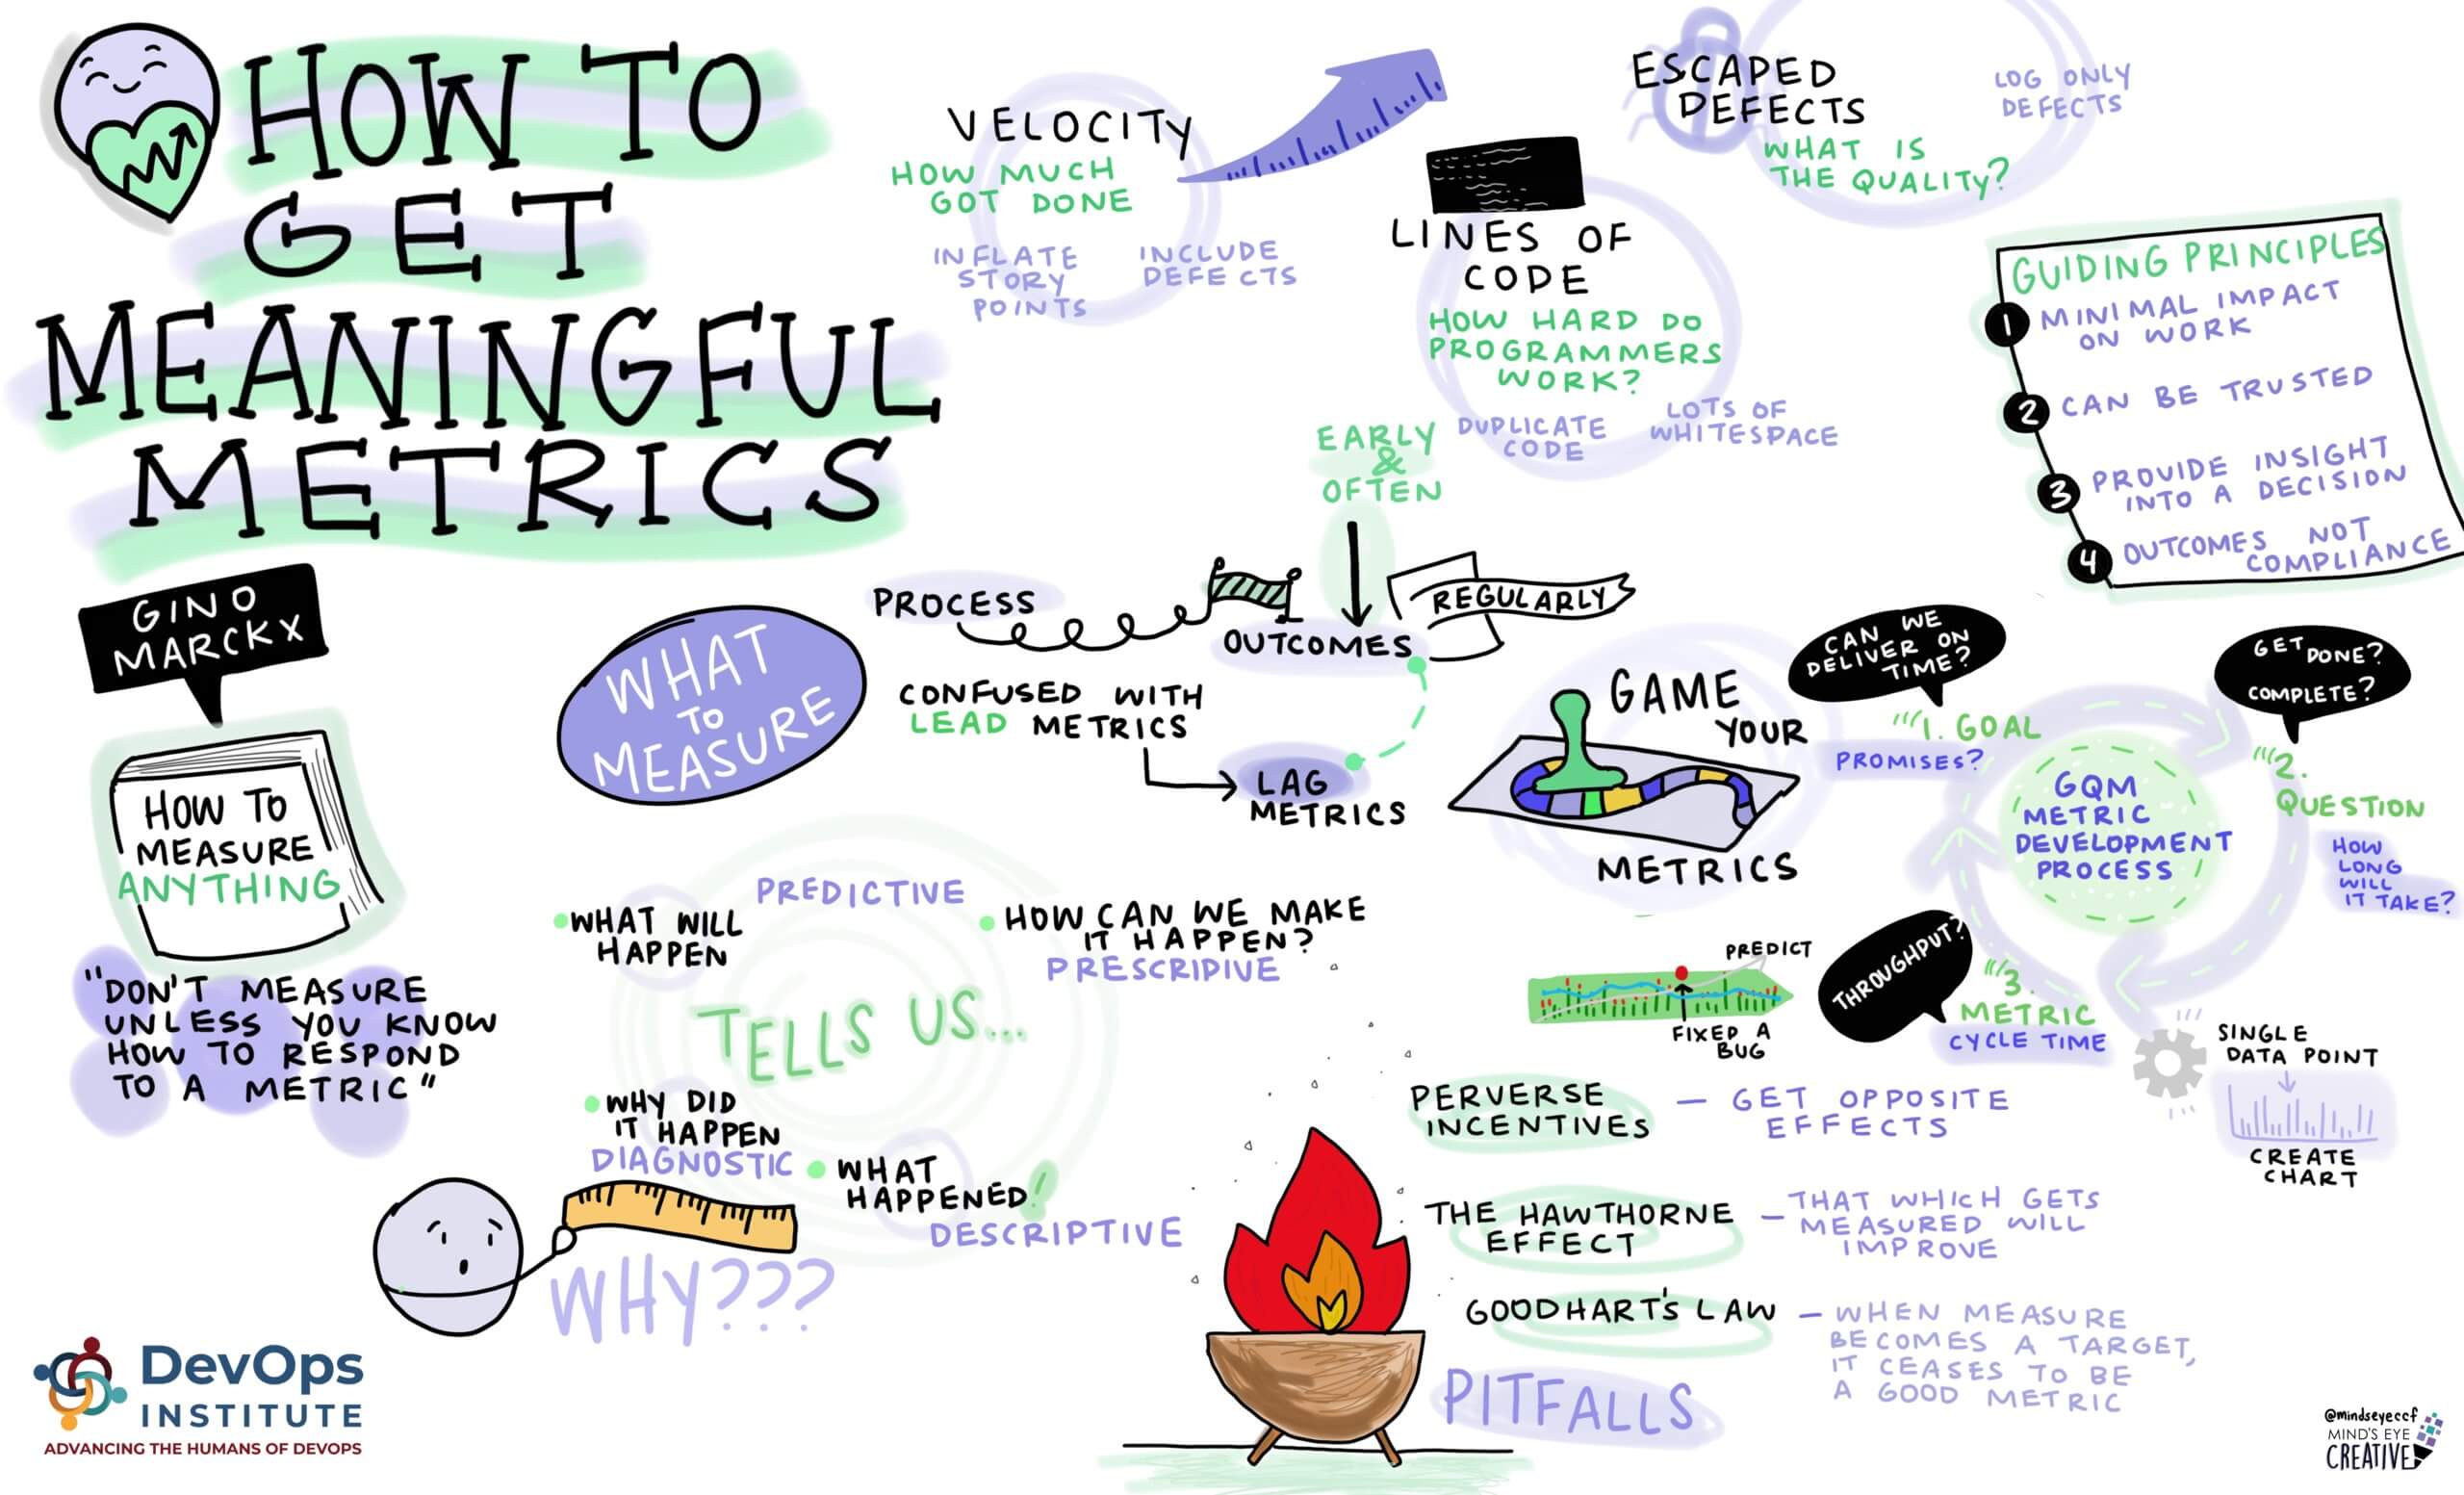 HOW TO
GET
MEANINGFUL
METRICS
GINO
MARCKX
HOW TO
MEASURE
ANYTHING
"DON'T MEASURE
UNLESS YOU KNOW
HOW TO RESPOND
TO A METRIC"
VELOCITY
HOW MUCH
GOT DONE
INFLATE
STORY
POINTS
INCLUDE
DEFECTS
LINES OF
CODE
HOW HARD DO
PROGRAMMERS
WORK?
DUPLICATE
CODE
LOTS OF
WHITESPACE
ESCAPED
DEFECTS
WHAT IS
THE QUALITY?
LOG ONLY
DEFECTS
GUIDING PRINCIPLES
1 MINIMAL IMPACT
ON WORK
2 CAN BE TRUSTED
3 PROVIDE INSIGHT
INTO A DECISION
4 OUTCOMES NOT
COMPLIANCE
WHAT
TO
MEASURE
PROCESS
EARLY
&
OFTEN
OUTCOMES
REGULARLY
CONFUSED WITH
LEAD METRICS
LAG
METRICS
GAME
YOUR
METRICS
CAN WE
DELIVER ON
TIME?
1. GOAL
PROMISES?
GET DONE?
COMPLETE?
2.
QUESTION
HOW
LONG
WILL
IT TAKE?
GQM
METRIC
DEVELOPMENT
PROCESS
THROUGHPUT?
3.
METRIC
CYCLE TIME
SINGLE
DATA POINT
CREATE
CHART
PREDICT
FIXED A
BUG
TELLS US...
WHAT WILL
HAPPEN
PREDICTIVE
HOW CAN WE MAKE
IT HAPPEN?
PRESCRIPIVE
WHY DID
IT HAPPEN
DIAGNOSTIC
WHAT
HAPPENED!
DESCRIPTIVE
WHY???
PERVERSE
INCENTIVES
— GET OPPOSITE
EFFECTS
THE HAWTHORNE
EFFECT
— THAT WHICH GETS
MEASURED WILL
IMPROVE
GOODHART'S LAW
— WHEN MEASURE
BECOMES A TARGET,
IT CEASES TO BE
A GOOD METRIC
PITFALLS
DevOps
INSTITUTE
ADVANCING THE HUMANS OF DEVOPS
@mindseyeccf
MIND'S EYE
CREATIVE